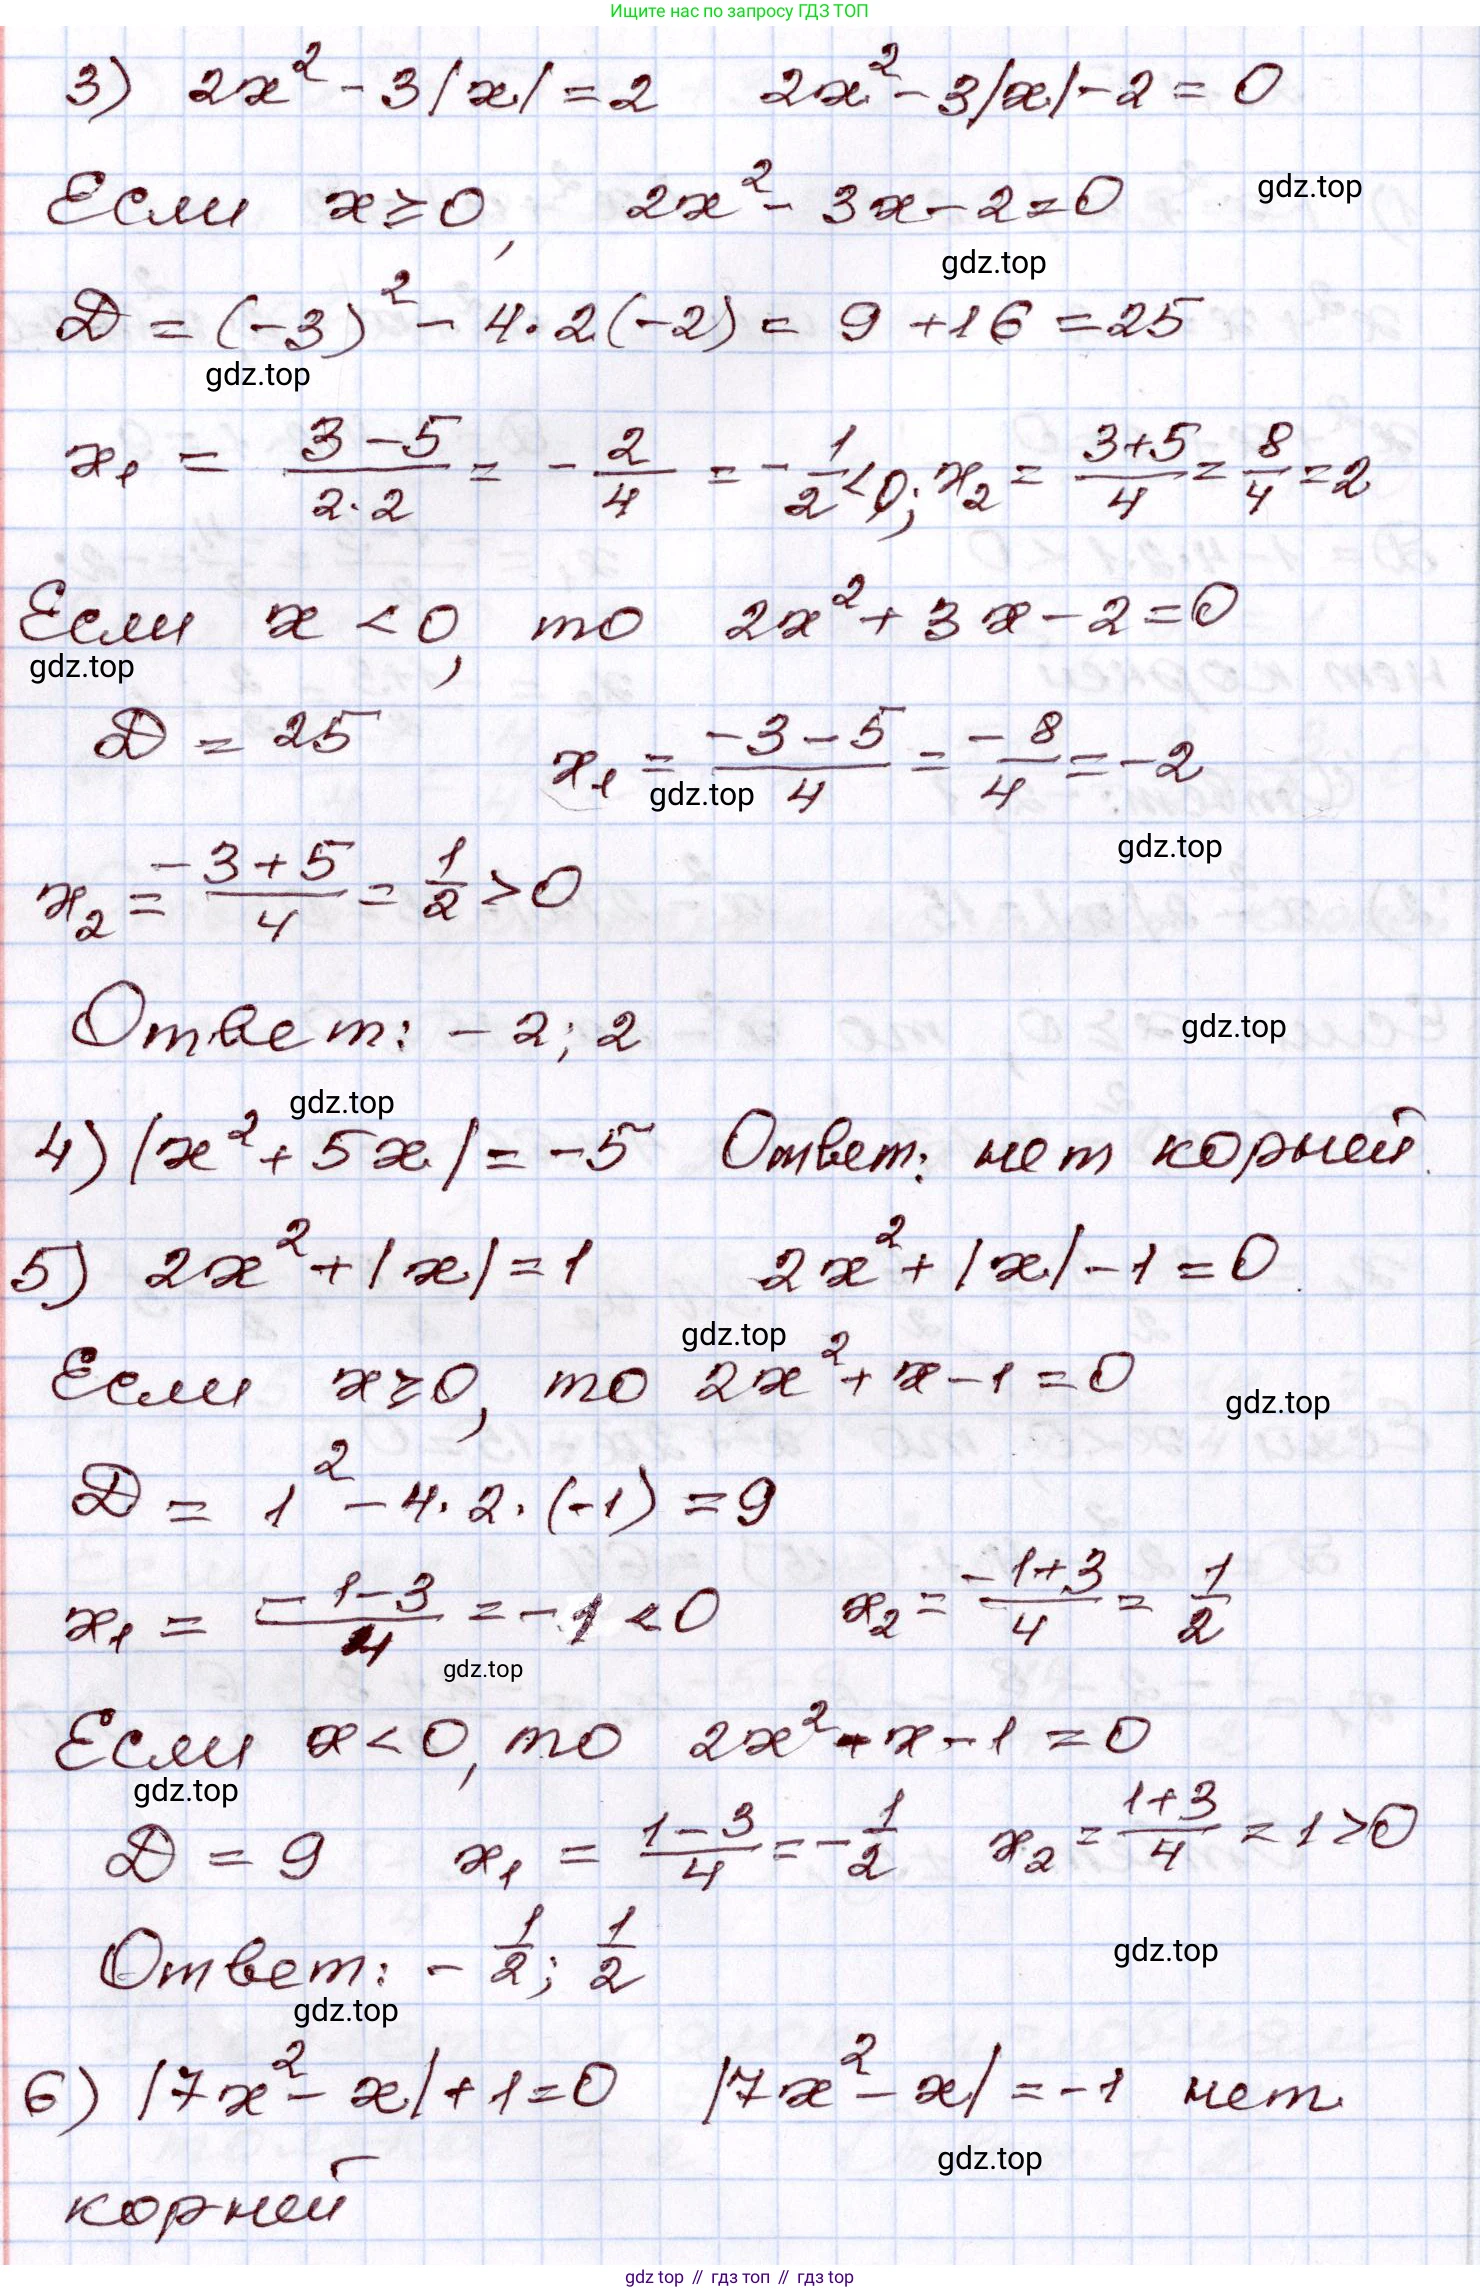 Ищите нас по запросу ГДЗ ТОП
3) 2x² - 3|x| = 2   2x² - 3|x| - 2 = 0
Если x ≥ 0,   2x² - 3x - 2 = 0
gdz.top
gdz.top
D = (-3)² - 4·2(-2) = 9 + 16 = 25
gdz.top
x₁ = (3-5)/(2·2) = -2/4 = -1/2 < 0; x₂ = (3+5)/4 = 8/4 = 2
Если x < 0, то 2x² + 3x - 2 = 0
gdz.top
D = 25   x₁ = (-3-5)/4 = -8/4 = -2
gdz.top
gdz.top
x₂ = (-3+5)/4 = 1/2 > 0
Ответ: -2; 2
gdz.top
gdz.top
4) |x² + 5x| = -5   Ответ: нет корней.
5) 2x² + |x| = 1   2x² + |x| - 1 = 0
gdz.top
Если x ≥ 0, то 2x² + x - 1 = 0
gdz.top
D = 1² - 4·2·(-1) = 9
x₁ = (-1-3)/4 = -1 < 0   x₂ = (-1+3)/4 = 1/2
gdz.top
Если x < 0, то 2x² - x - 1 = 0
gdz.top
D = 9   x₁ = (1-3)/4 = -1/2   x₂ = (1+3)/4 = 1 > 0
Ответ: -1/2; 1/2
gdz.top
gdz.top
6) |7x² - x| + 1 = 0   |7x² - x| = -1 нет
gdz.top
корней
gdz top // гдз топ // гдз top